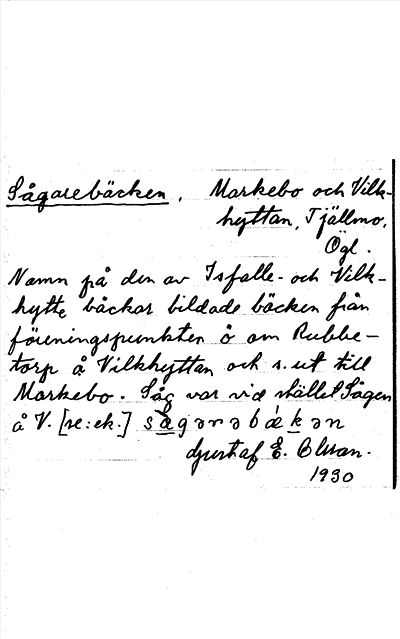 Sågarebäcken. Markebo och Vilk-
hyttan, Tjällmo,
Ögl.
Namn på den av Isfalle- och Vilk-
hytte bäckar bildade bäcken från
föreningspunkten ö om Rubbe-
torp å Vilkhyttan och s. ut till
Markebo. Såg var vid stället Sågen
å V. [se: ek.] sågərəbäkən
Gustaf E. Olsson.
1930